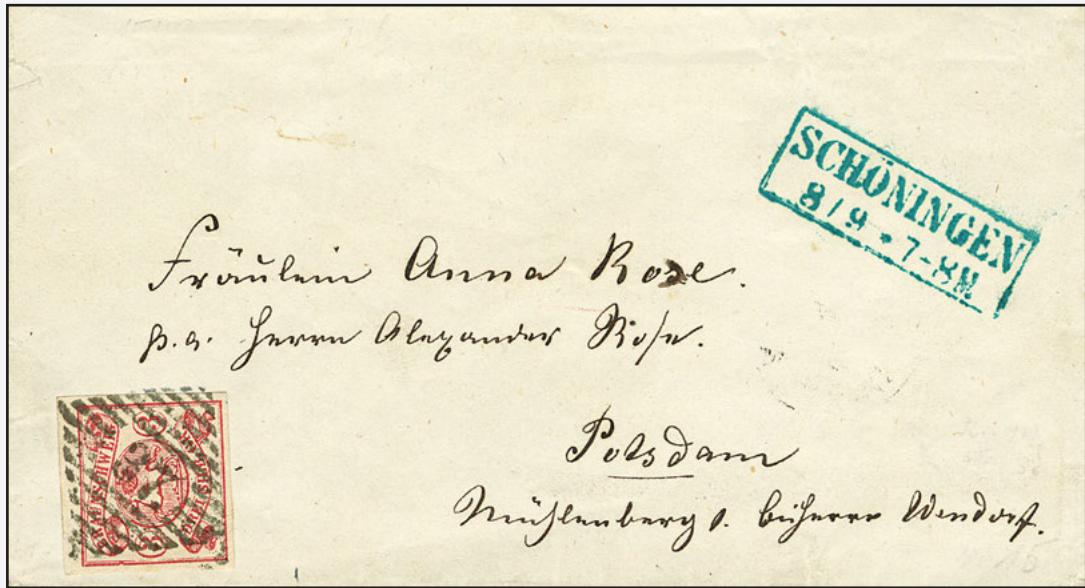 SCHÖNINGEN
8/9 * 7-8 N.
Fräulein Anna Rose.
p. a. Herrn Alexander Rose.
Potsdam
Mühlenberg 1. bei Herrn Wendorf.
BRAUNSCHWEIG
3